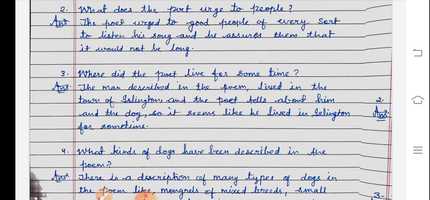 2. What does the poet urge to people?
Ans: The poet urged to good people of every sort
to listen his song and he assures them that
it would not be long.
3. Where did the poet live for some time?
Ans: The man described in the poem, lived in the
town of Islington and the poet tells about him
and the dog, so it seems like he lived in Islington
for sometime.
2.
Ans:
4. What kinds of dogs have been described in the
poem?
Ans: There is a description of many types of dogs in
the poem like, mongrels of mixed breeds, small
3.